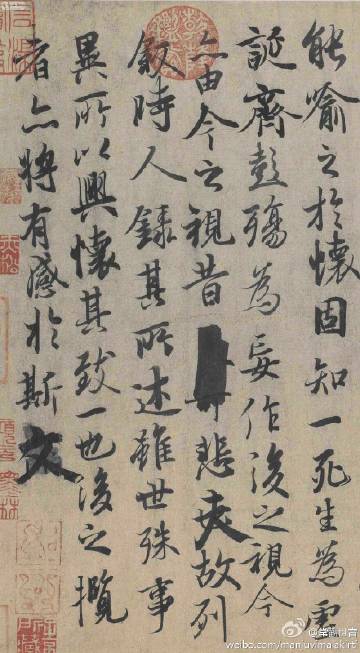 能喻之於懷固知一死生為虛
誕齊彭殤為妄作後之視今
亦由今之視昔悲夫故列
敘時人錄其所述雖世殊事
異所以興懷其致一也後之攬
者亦將有感於斯文
weibo.com/manjuvimalakirti